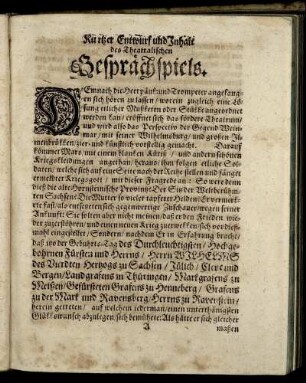 Kurtzer Entwurf und Inhalt
des Theatralischen
Gesprächspiels.
DEmnach die Heerpauk und Trompeter angefangen
sich hören zu lassen / worein zugleich eine Lösung
etlicher Musketen oder Stükke angeordnet
werden kan / eröffnet sich das fördere Theatrum
und wird also das Perspectiv der Gegend Weinmar /
mit seiner Wilhelmsburg / und großen Ilmenbrükken /
zier- und künstlich vorstellig gemacht. Darauf
kömmet Mars / mit einem blanken Küris / und andern schönen
Kriegskleidungen angethan / heraus: ihm folgen etliche Soldaten /
welche sich auf eine Seite nach der Reihe stellen und fänget
hier mit dieser Frage an: So were denn
dieß die alte Hornsteinische Provintz? Der Sitz der Weltberühmten
Sachsen? Die Mutter so vieler tapferer Helden?
seiner
Ankunft: Sie solten aber nicht meinen / daß er den Frieden wieder
zuzerstören / und einen neuen Krieg zuerwekken / sich vor dießmahl
eingestellet / Sondern / nachdem Er in Erfahrung bracht /
daß itzo der Gebuhrts-Tag des Durchleuchtigsten / Hochgebohrnen
Fürsten und Herrns / Herrn WILHELMS
des Vierdten Hertzogs zu Sachsen / Jülich / Cleve und
Bergen / Landgrafens in Thüringen / Markgrafens zu
Meißen / Gefürsteten Grafens zu Henneberg / Grafens
zu der Mark und Ravensberg / Herrns zu Ravenstein /
herein getreten / auf welchem iederman / einen unterthänigsten
Glükkwuntsch abzulegen / sich bemühete: Als hätte er sich gleicher
A maßen